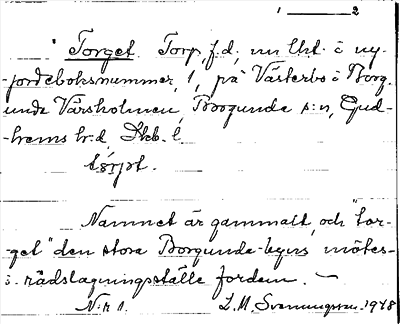 1 ——— 2
"Torget. Torp, f.d., nu lht. i ny-
jordeboksnummer, 1, på Västerbo i Borg.
unda Vårsholmen, Borgunda s:n, Gud-
hems hd, Skb. l.
Namnet är gammalt, och "tor-
get" den stora Borgunda-byns mötes-
o. rådslagningsställe fordom. —
N:r 1. L. M. Svenungsson. 1948